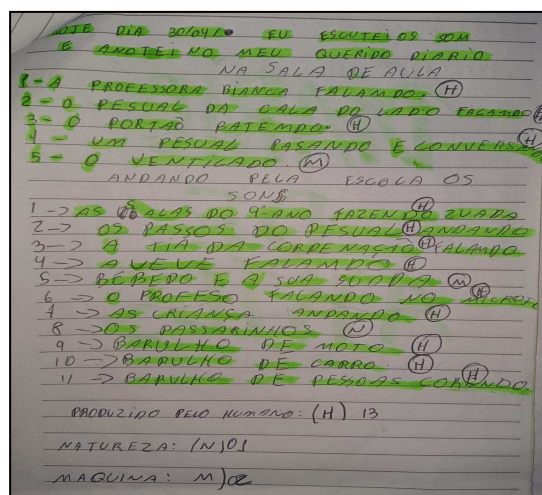 HOJE DIA 30/04/ EU ESCUTEI OS SOM
E ANOTEI NO MEU QUERIDO DIARIO
NA SALA DE AULA
1-A PROFESSORA BIANCA FALAMDO. (H)
2-O PESUAL DA CALA DO LADO FALAMDO (H)
3-O PORTAÕ BATEMDO. (H)
4-UM PESUAL PASANDO E CONVERSA (H)
5-O VENTICADO. (M)
ANDANDO PELA ESCOLA OS
SONS
1-> AS SALAS DO 9º ANO FAZENDO ZUADA (H)
2-> OS PASSOS DO PESUAL (H) ANDANDO
3-> A TIA DA CORDENAÇÃO (H) FALAMDO
4-> A VEVE FALAMDO (H)
5-> BEBEDO E A SUA SUADA (M)
6 -> O PROFESO FALANDO NO MICROFO (H)
7 -> AS CRIANÇA ANDANDO (H)
8 -> OS PASSARINHOS (N)
9 -> BARULHO DE MOTO (H)
10 -> BARULHO DE CARRO. (H)
11 -> BARULHO DE PESSOAS CORENDO. (H)
PRODUZIDO PELO HUMANO: (H) 13
NATUREZA: (N) 01
MAQUINA: M) 02